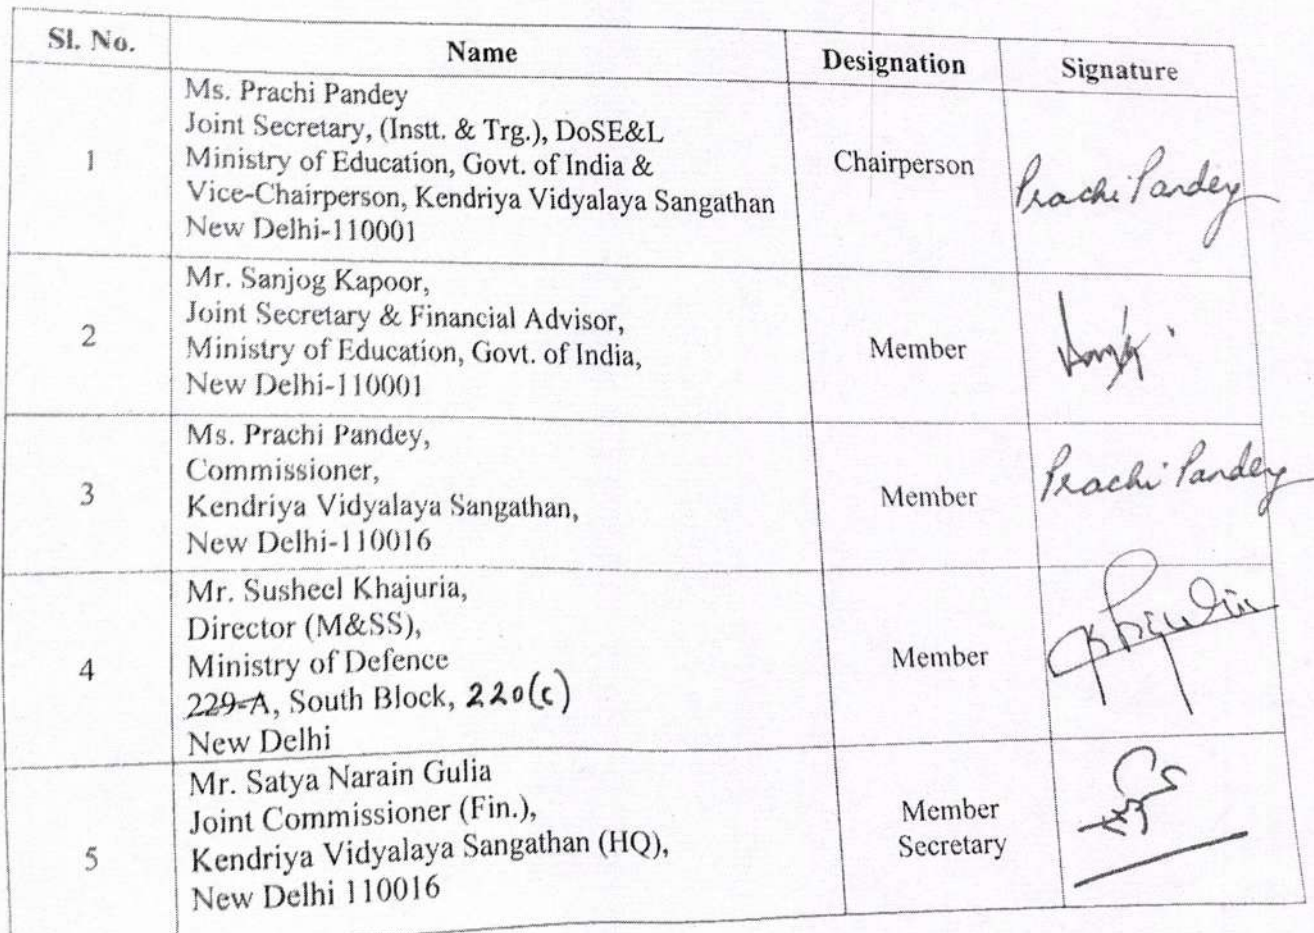 Sl. No. Name Designation Signature
1
Ms. Prachi Pandey
Joint Secretary, (Instt. & Trg.), DoSE&L
Ministry of Education, Govt. of India &
Vice-Chairperson, Kendriya Vidyalaya Sangathan
New Delhi-110001
Chairperson
Prachi Pandey
2
Mr. Sanjog Kapoor,
Joint Secretary & Financial Advisor,
Ministry of Education, Govt. of India,
New Delhi-110001
Member
3
Ms. Prachi Pandey,
Commissioner,
Kendriya Vidyalaya Sangathan,
New Delhi-110016
Member
Prachi Pandey
4
Mr. Susheel Khajuria,
Director (M&SS),
Ministry of Defence
229-A, South Block, 220(c)
New Delhi
Member
5
Mr. Satya Narain Gulia
Joint Commissioner (Fin.),
Kendriya Vidyalaya Sangathan (HQ),
New Delhi 110016
Member
Secretary